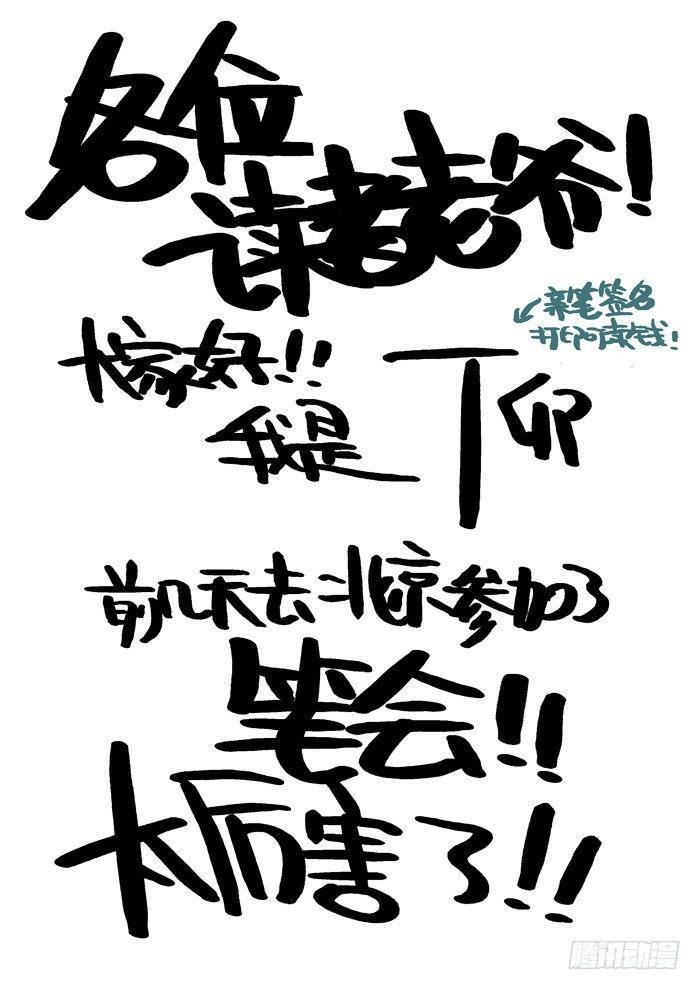 各位
读者老爷！
亲笔签名
打印卖钱！
大家好！！
我是丁卯
前几天去北京参加了
笔会！！
太厉害了！！
腾讯动漫